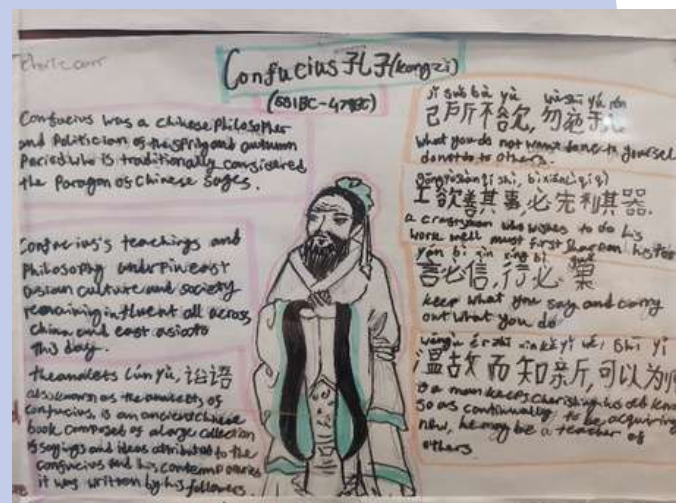 Confucius 孔子(kongzi)
(551BC-479BC)
Confucius was a chinese Philosopher
and Politician of the spring and autumn
Period who is traditionally considered
the Paragon of Chinese Sages.
Confucius's teachings and
Philosophy underpin east
asian culture and society
remaining influent all across
china and east asia to
this day.
the analets lún yǔ, 论语
also known as the analects of
confucius, is an ancient chinese
book composed of a large collection
of sayings and ideas attributed to the
confucius and his contemporaries
it was written by his followers.
jǐ suǒ bù yù wù shī yú rén
己所不欲,勿施于
what you do not want done to yourself
do not do to others.
工欲善其事,必先利其器.
a craftsman who wishes to do his
work well must first sharpen his
yán bì xìn xíng bì guǒ
言必信,行必果
keep what you say and carry
out what you do
温故而知新,可以为
is a man keeps cherishing his old
so as continually to be acquiring
new, he may be a teacher of
others.